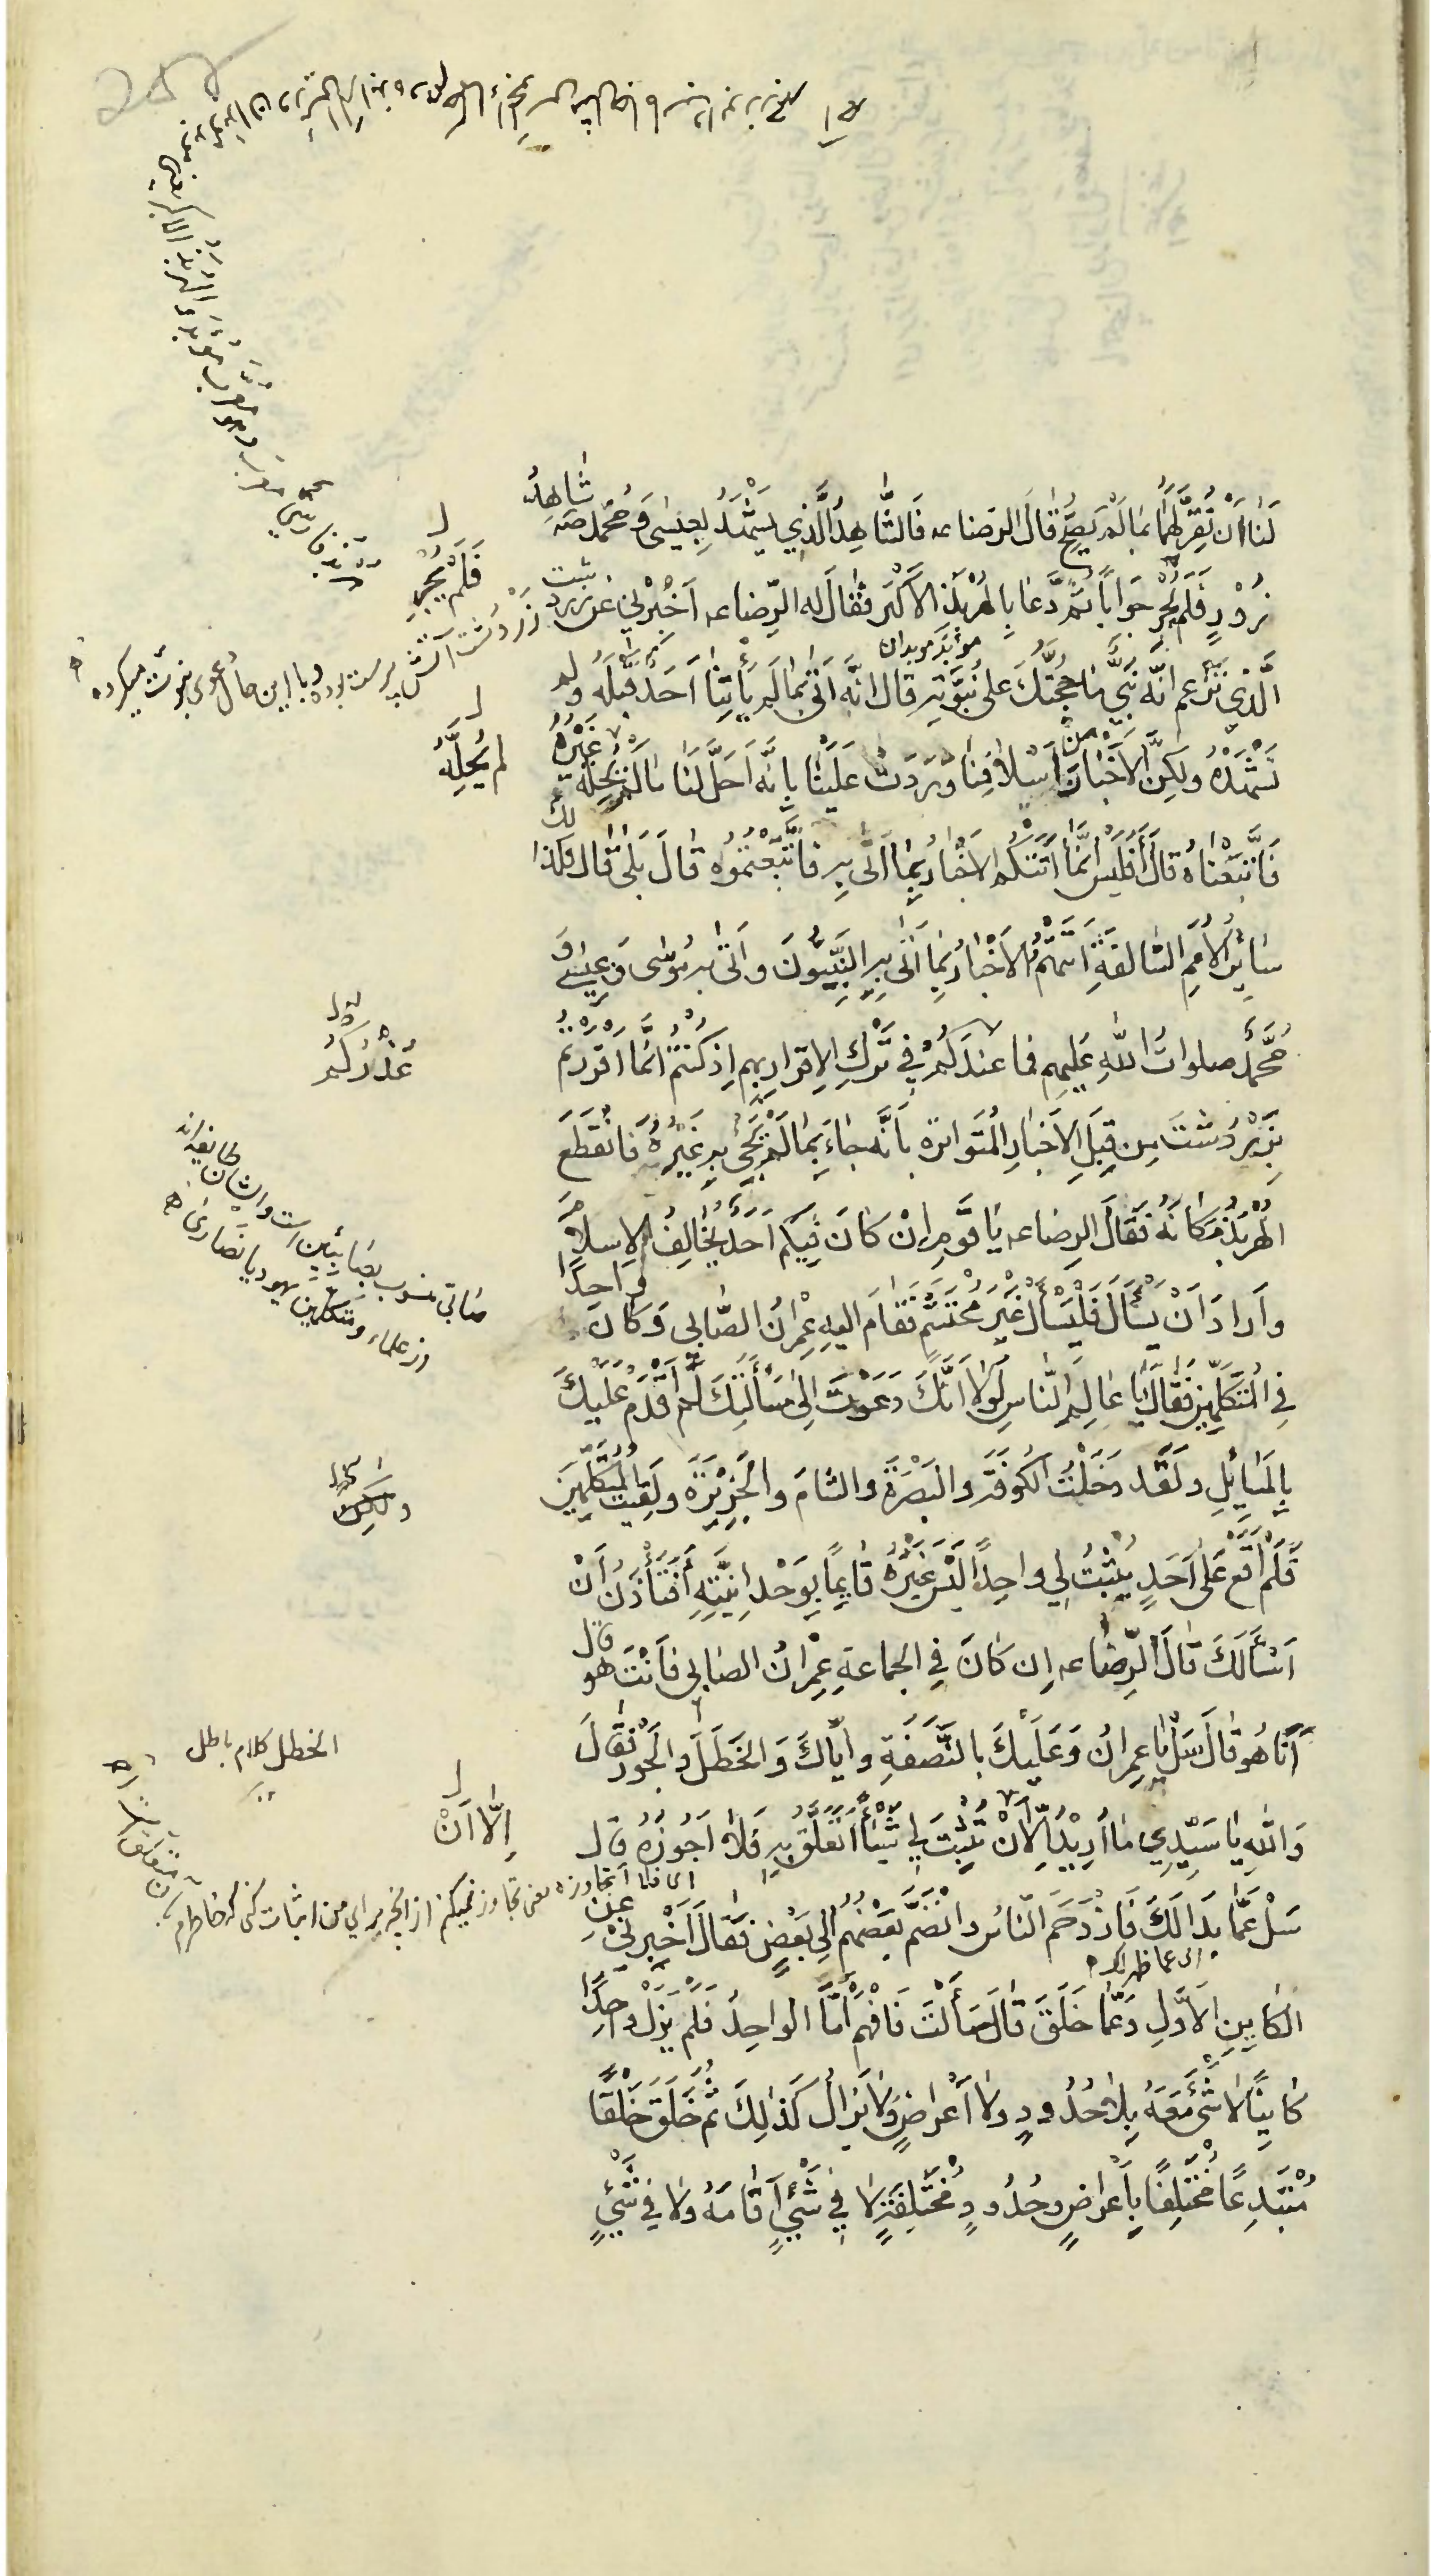 لَنا اَنْ نُقِرَّ لَهُما بما لَمْ يَصِحَّ قالَ الرضا عـ فَالشّاهِدُ الَّذي يَشْهَدُ لِعيسى وَ محمّد صـ شاهِدُ
زُوْرٍ فَلَم يُحِرْ جَوابًا ثمّ دَعا بِالهِرْبَذِ الاَكْبَرِ فقالَ له الرِّضا عـ اَخْبِرْني عن زردشت
الَّذي تَزْعُم انّه نَبيٌّ ما حُجَّتُكَ على نُبُوَّتِه قال انَّه اَتى بما لَم يَأتِنا اَحَدٌ قَبْلَه ولم
نَشْهَدْهُ ولكِنَّ الاَخْبارَ مِن اَسْلافِنا وَرَدَتْ عَلَيْنا بِاَنَّه اَحَلَّ لَنا ما لَمْ يُحِلَّه غَيْرُهُ
فَاتَّبَعْناهُ قالَ اَفَلَيْسَ اِنَّما اَتَتْكُم الاَخْبارُ بِما اَتى بِهِ فَاتَّبَعْتُمُوه قالَ بَلى قال فكذلك
سائِرُ الاُمَمِ السّالفَةِ اَتَتْهُمُ الاَخْبارُ بِما اَتى بِهِ النَّبِيُّونَ واَتى به مُوسى وَ عِيسى وَ
مُحَمَّدٌ صلواتُ اللّهِ عليهم فما عندَكُمْ في تَرْكِ الاِقرارِ بهم اِذ كُنتُمْ اِنَّما اَقْرَرْتُم
بِزَرْدُشْتَ مِن قِبَلِ الاَخبارِ المُتَواترة بِاَنَّه جاءَ بِما لَمْ يَجِئْ بِهِ غَيْرُهُ فَانْقَطَعَ
الهِرْبَذُ مَكانَهُ فَقالَ الرِضا عـ يا قَوْمِ اِنْ كانَ فيكُم اَحَدٌ يُخالِفُ الاِسلامَ
واَرادَ اَنْ يَسْأَلَ فَلْيَسْأَلْ غَيْرَ مُحْتَشِمٍ فَقامَ اليهِ عِمْرانُ الصّابي وَ كانَ واحِدًا
فِي المُتَكَلِّمينَ فَقالَ يا عالِمَ النّاسِ لَوْلا اَنَّكَ دَعَوْتَ اِلى مَسْأَلَتِكَ لَمْ اُقْدِمْ عَلَيْكَ
بِالمَسايِلِ ولَقَد دَخَلْتُ الكُوفَةَ والبَصْرَةَ والشامَ والجَزيرَةَ ولَقيتُ المُتَكَلِّمينَ
فَلَمْ اَقَعْ عَلى اَحَدٍ يُثْبِتُ لِي واحِدًا لَيْسَ غَيْرُهُ قائِمًا بِوَحْدانِيَّتِهِ اَفَتَأْذَنُ اَنْ
اَسْأَلَكَ قالَ الرِّضا عـ اِن كانَ فِي الجماعةِ عِمْرانُ الصابي فَاَنْتَ هو قال
اَنا هُو قالَ سَلْ يا عِمرانُ وَعَلَيْكَ بِالنَّصَفَةِ واِيّاكَ وَالخَطَلَ والجَوْرَ فَقالَ
وَاللّهِ يا سَيِّدِي ما اُريدُ اِلّا اَنْ تُثْبِتَ لِي شَيْئًا اَتَعَلَّقُ بِهِ فَلا اَجُوزُهُ قال
سَلْ عَمّا بَدا لَكَ فَازْدَحَمَ النّاسُ وانْضَمَّ بَعْضُهُم اِلى بَعْضٍ فَقالَ اَخْبِرْني عَنِ
الكايِنِ الاَوَّلِ وَعَمّا خَلَقَ قالَ سَأَلْتَ فَافْهَمْ اَمّا الواحِدُ فَلَمْ يَزَلْ واحِدًا
كايِنًا لا شَئَ مَعَهُ بِلا حُدُودٍ ولا اَعْراضٍ ولا يَزالُ كَذلِكَ ثُمَّ خَلَقَ خَلْقًا
مُبْتَدِعًا مُخْتَلِفًا بِاَعراضٍ وحُدُودٍ مُخْتَلِفَةٍ لا فِي شَيْءٍ اَقامَهُ ولا فِي شَيْءٍ
فَلَمْ يُحِرْ
زَرْدُشت آتش پرست بوده وبا این حال دعوی نبوت میکرده
موبد موبدان
لم يُحِلَّهُ
عُذْرُكُم
صابی منسوب بصابئین است وایشان طایفه‌اند
از علماء ومتکلمین یهود یا نصاری
ولكِن
الخطل كلام باطل
اِلّا اَنْ
ای فلا اتجاوزه یعنی تجاوز نمیکنم از آنچه برای من اثبات کنی که خاطرم بآن متعلق
ای عما ظهر لك